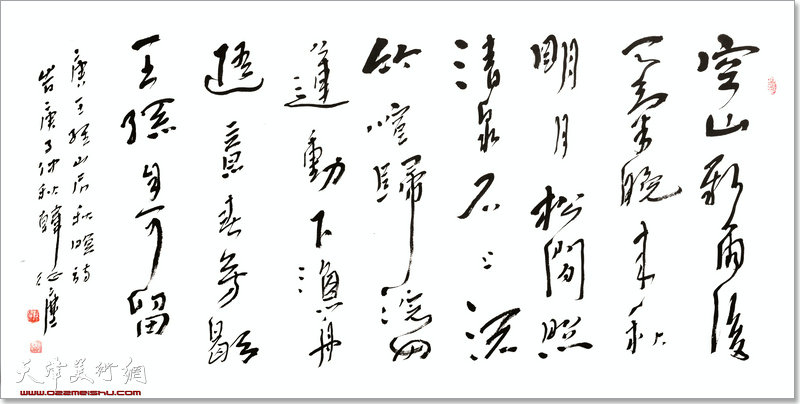 空山新雨後
天氣晚来秋
明月松間照
清泉石上流
竹喧歸浣女
蓮動下漁舟
隨意春芳歇
王孫自可留
唐王維山居秋暝詩
歲庚子仲秋韓征塵
天津美術網
www.022meishu.com